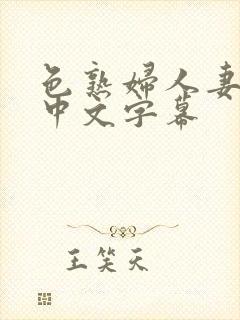 色熟婦人妻
中文字幕
王笑天